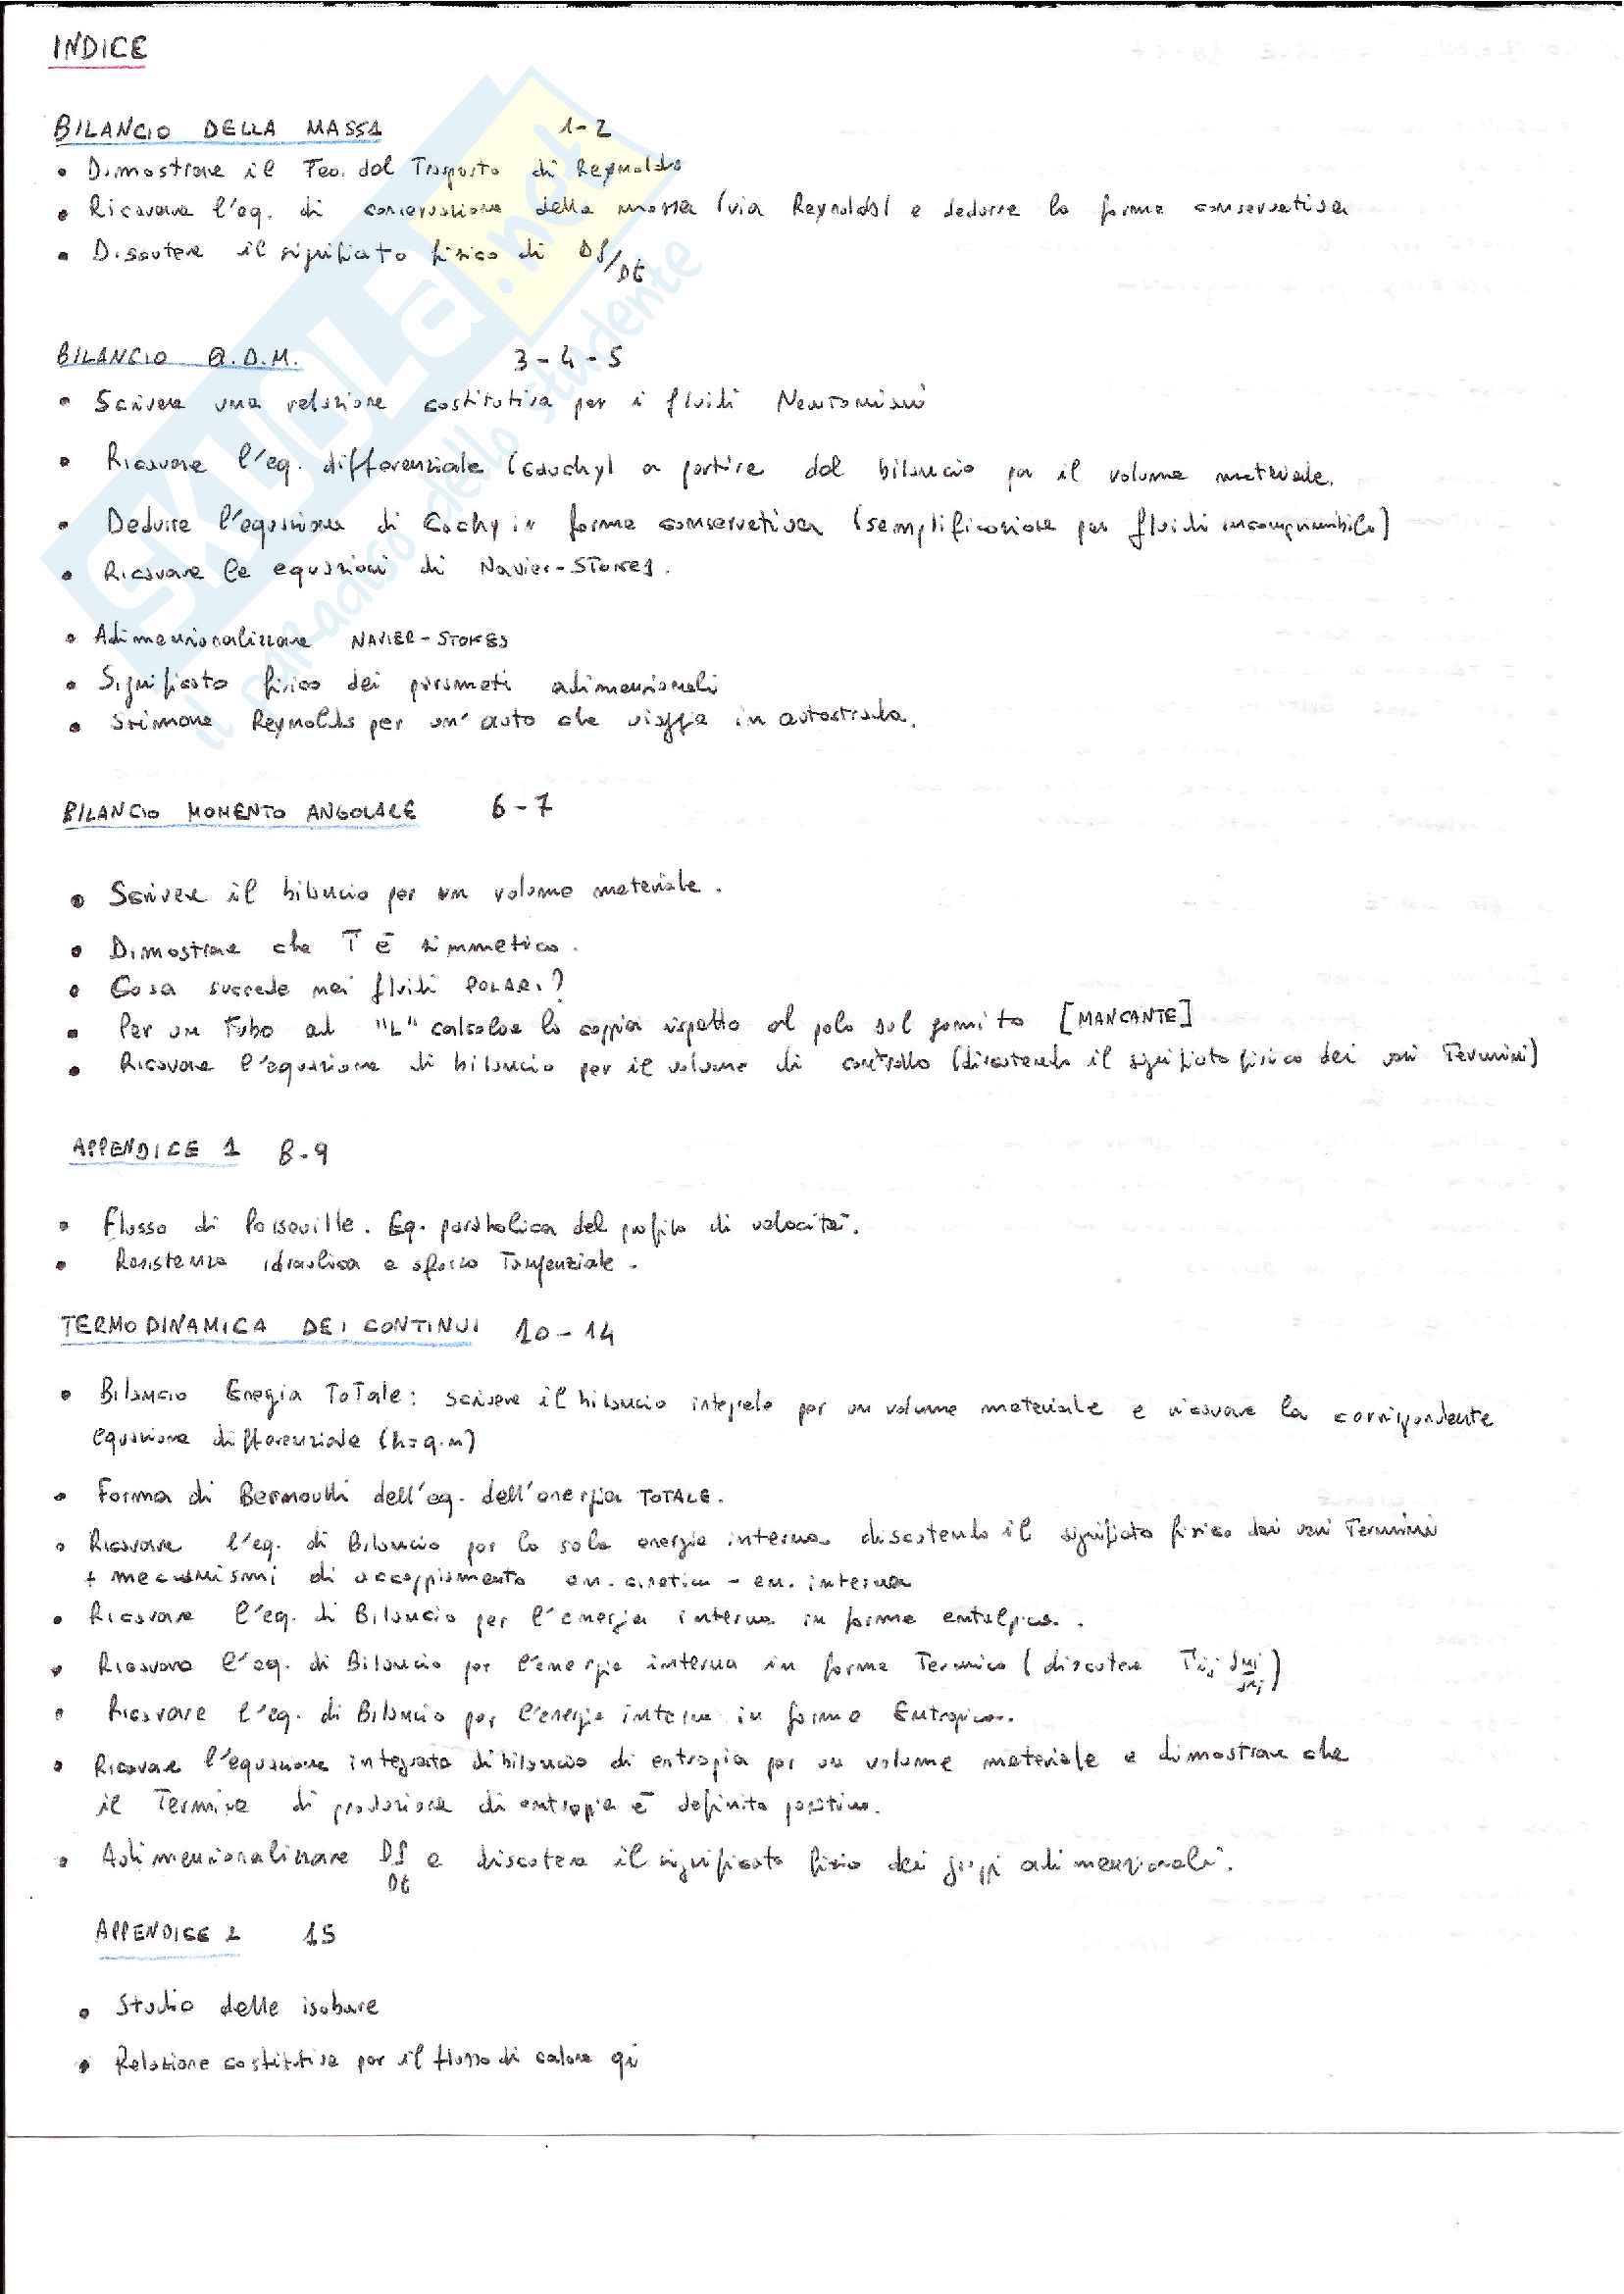 INDICE
BILANCIO DELLA MASSA 1-2
• Dimostrare il Teo. del Trasporto di Reynolds
• Ricavare l'eq. di conservazione della massa (via Reynolds) e dedurre la forma conservativa
• Discutere il significato fisico di Df/Dt
BILANCIO Q.D.M. 3-4-5
• Scrivere una relazione costitutiva per i fluidi Newtoniani
• Ricavare l'eq. differenziale (Cauchy) a partire dal bilancio per il volume materiale.
• Dedurre l'equazione di Cochy in forma conservativa (semplificazione per fluidi incomprimibili)
• Ricavare le equazioni di Navier-Stokes.
• Adimensionalizzare NAVIER-STOKES
• Significato fisico dei parametri adimensionali
• Stimare Reynolds per un'auto che viaggia in autostrada.
BILANCIO MOMENTO ANGOLARE 6-7
• Scrivere il bilancio per un volume materiale.
• Dimostrare che T è simmetrico.
• Cosa succede nei fluidi POLARI?
• Per un tubo ad "L" calcolare la coppia rispetto al polo sul gomito [MANCANTE]
• Ricavare l'equazione di bilancio per il volume di controllo (discutendo il significato fisico dei vari Termini)
APPENDICE 1 8-9
• Flusso di Poiseuille. Eq. parabolica del profilo di velocità.
• Resistenza idraulica e sforzo Tangenziale.
TERMODINAMICA DEI CONTINUI 10-14
• Bilancio Energia Totale: scrivere il bilancio integrale per un volume materiale e ricavare la corrispondente
equazione differenziale (h=q·n)
• Forma di Bernoulli dell'eq. dell'energia TOTALE.
• Ricavare l'eq. di Bilancio per la sola energia interna discutendo il significato fisico dei vari Termini
+ meccanismi di accoppiamento en. cinetica - en. interna
• Ricavare l'eq. di Bilancio per l'energia interna in forma entalpica.
• Ricavare l'eq. di Bilancio per l'energia interna in forma Termica (discutere Tij ∂ui/∂xj)
• Ricavare l'eq. di Bilancio per l'energia interna in forma Entropica.
• Ricavare l'equazione integrata di bilancio di entropia per un volume materiale e dimostrare che
il Termine di produzione di entropia è definito positivo.
• Adimensionalizzare Df/Dt e discutere il significato fisico dei gruppi adimensionali.
APPENDICE 2 15
• Studio delle isobare
• Relazione costitutiva per il flusso di calore qi
SKUOLA.net
il paradiso dello studente